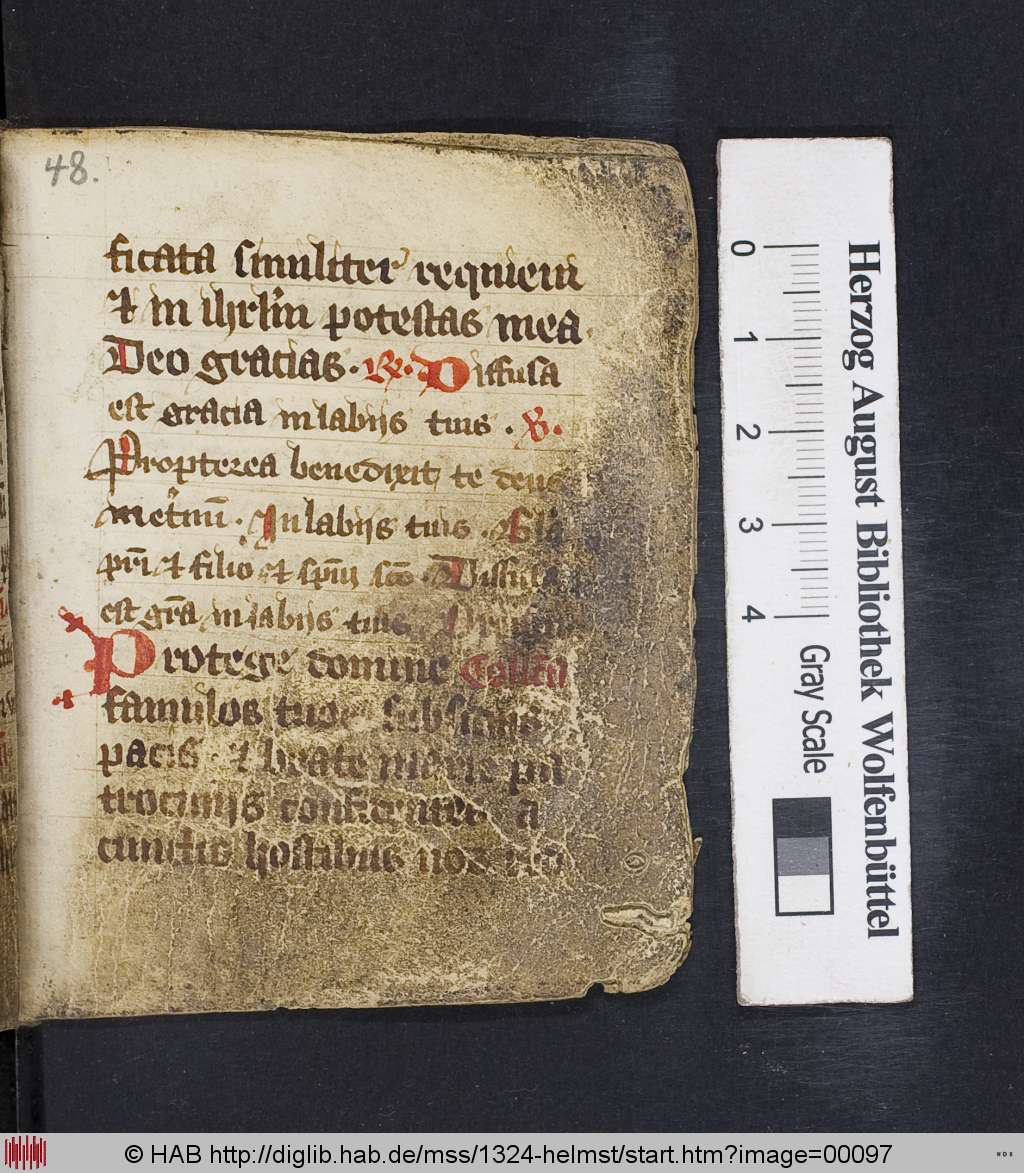 48.
ficata similiter requieui
et in ihrlm potestas mea.
Deo gracias. R. Diffusa
est gracia in labijs tuis. V.
Propterea benedixit te deus
in eternu. In labijs tuis. Gla
pri et filio et spui sco. Diffusa
est gra in labijs tuis
Protege domine Collcn
famulos tuos subsidiis
pacis et beate marie pa
trocinijs confidentes a
cunctis hostibus nos
0
1
2
3
4
Gray Scale
Herzog August Bibliothek Wolfenbüttel
© HAB http://diglib.hab.de/mss/1324-helmst/start.htm?image=00097